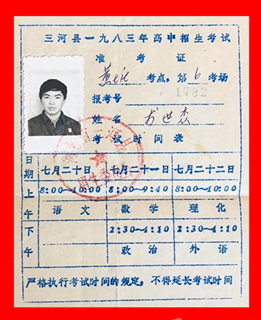 三河县一九八三年高中招生考试
准考证
考点,第6考场
报考号 1782
姓名
考试时间表
日期 七月二十日 七月二十一日 七月二十二日
上午 8:00—10:00 8:00—9:40 8:00—10:00
语文 数学 理化
下午 2:30—4:10 2:30—4:10
政治 外语
严格执行考试时间的规定,不得延长考试时间